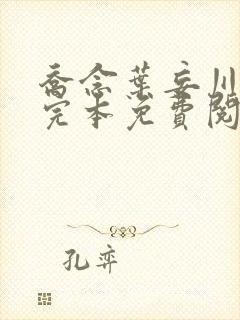 喬念葉妄川
完本免費閱
孔弈